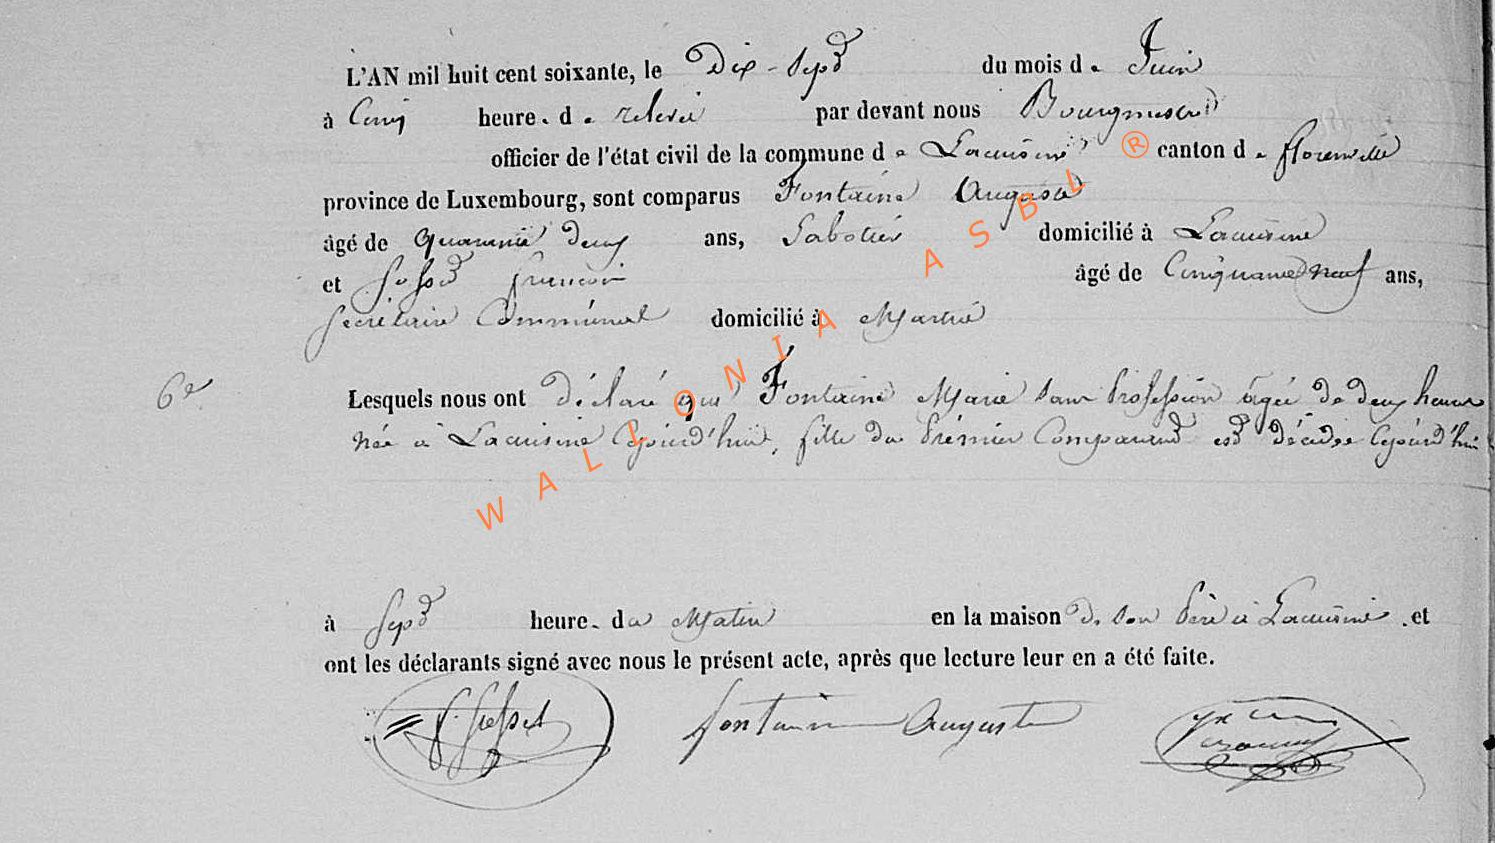 L'AN mil huit cent soixante, le Dix-Sept du mois de Juin
à Cinq heure. de relevé par devant nous Bourgmestre
officier de l'état civil de la commune de Lacuisine ® canton de florenville
province de Luxembourg, sont comparus Fontaine Auguste
âgé de quarante deux ans, Sabotier domicilié à Lacuisine
et françois âgé de Cinquante neuf ans,
Secrétaire Communal domicilié à Martué
6e Lesquels nous ont déclaré que Fontaine Marie sans Profession âgée de deux heures
née à Lacuisine Cejourd'hui, fille du Prémier Comparant est décédée Cejourd'hui
à Sept heure. du Matin en la maison de son Père à Lacuisine . et
ont les déclarants signé avec nous le présent acte, après que lecture leur en a été faite.
fontaine Auguste
WALLONIA ASBL